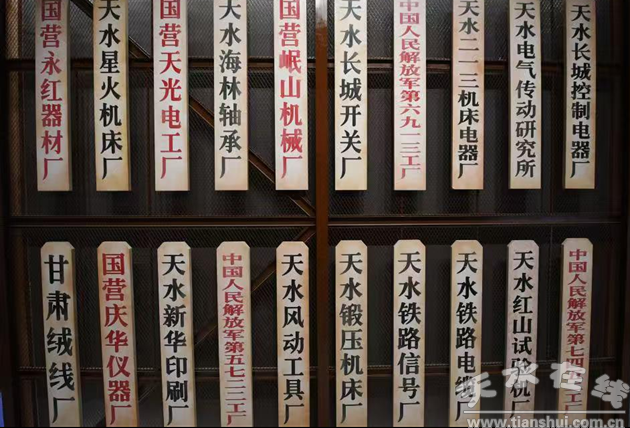 国营永红器材厂
天水星火机床厂
国营天光电工厂
天水海林轴承厂
国营岷山机械厂
天水长城开关厂
中国人民解放军第六九一三工厂
天水二一三机床电器厂
天水电气传动研究所
天水长城控制电器厂
甘肃绒线厂
国营庆华仪器厂
天水新华印刷厂
中国人民解放军第五七二二工厂
天水风动工具厂
天水锻压机床厂
天水铁路信号厂
天水铁路电缆厂
天水红山试验机厂
中国人民解放军第七四
天水在线
www.tianshui.com.cn